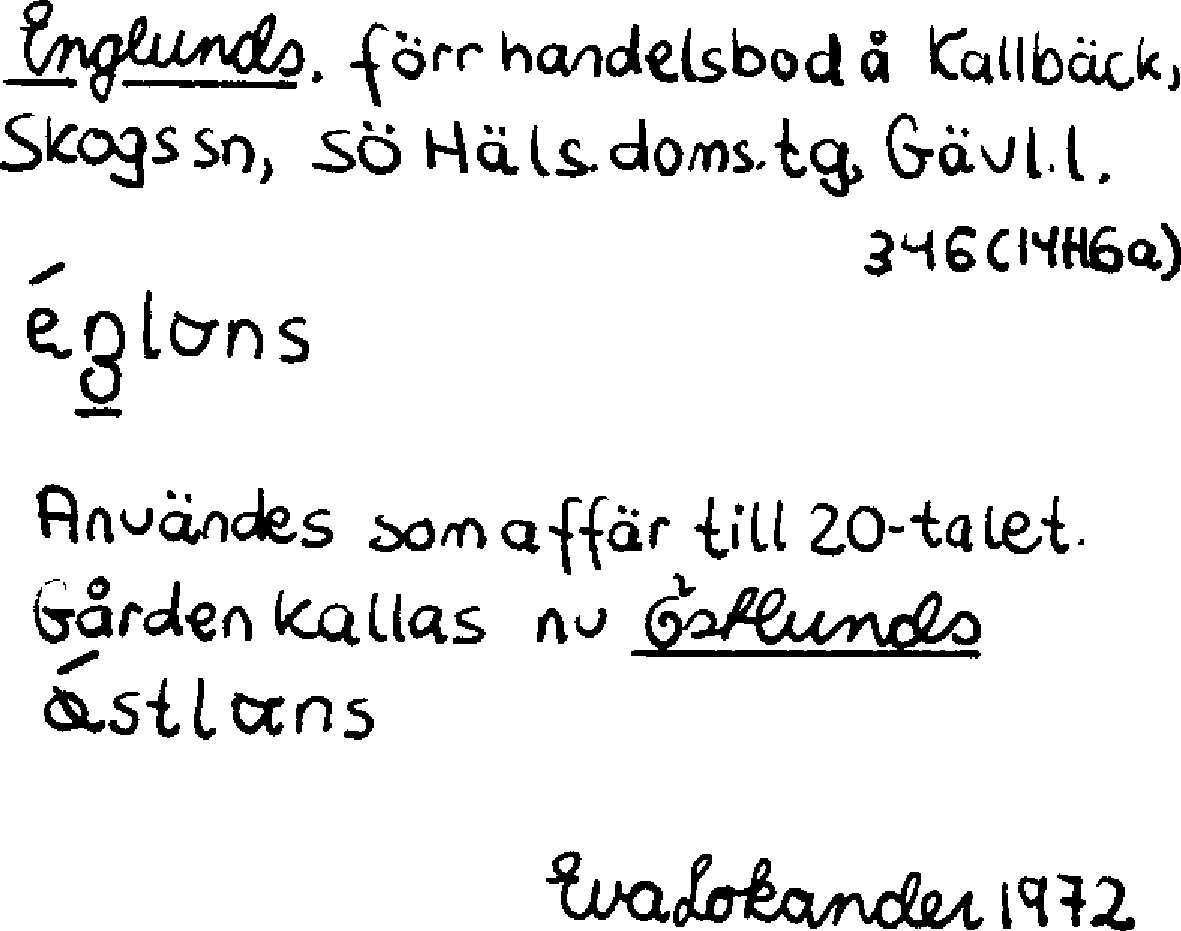 Englunds. förr handelsbod å Kallbäck,
Skogs sn, SÖ Häls. doms. tg, Gävl. l.
346 (14H6a)
Användes som affär till 20-talet.
Gården kallas nu Östlunds
Eva Lokander 1972